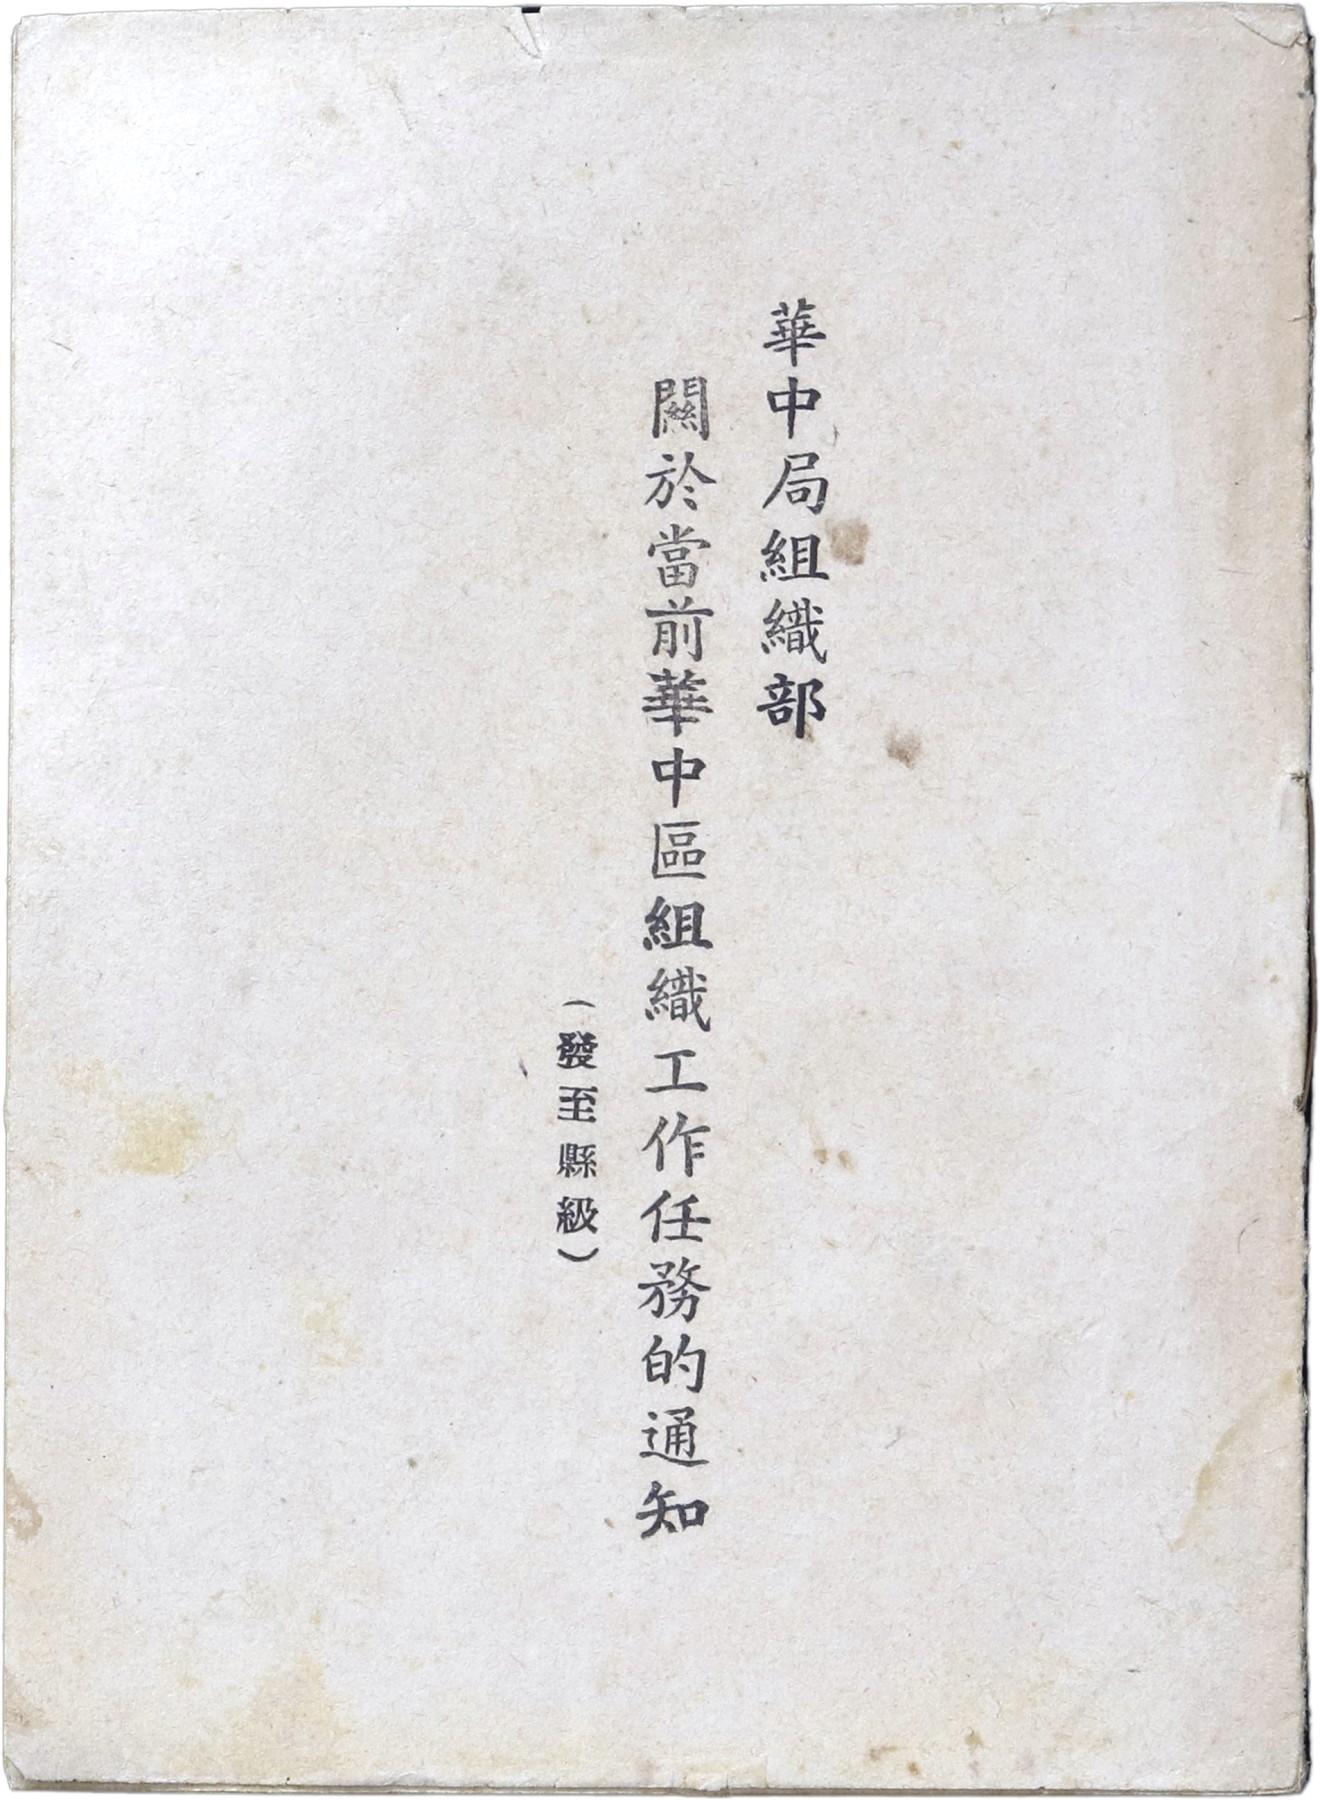 華中局組織部
關於當前華中區組織工作任務的通知
（發至縣級）